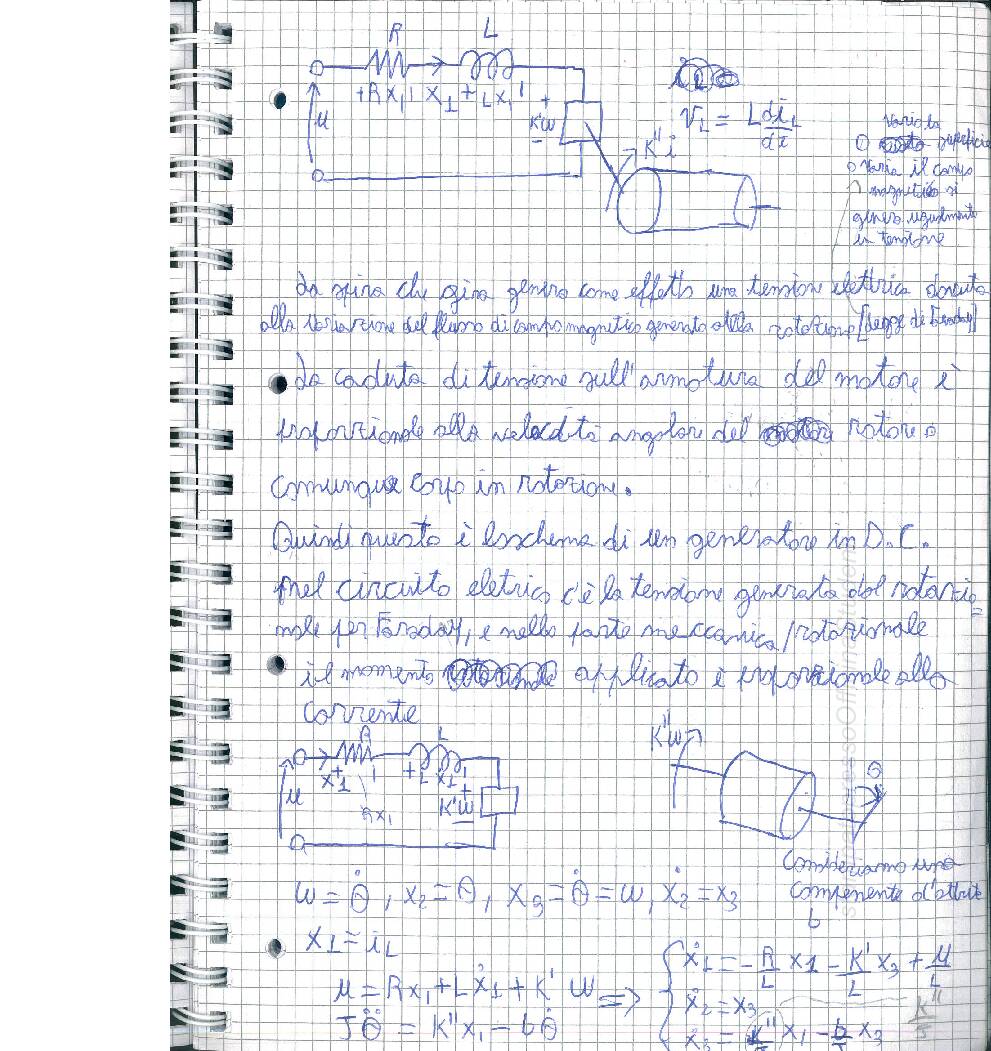 R L
+ R x1 x1 + L ẋ1 +
u
K'ω
K'' i
v_L = L di_L/dt
Varia la
superficie
o varia il campo
magnetico si
genera ugualmente
in tensione
La spira che gira genera come effetto una tensione elettrica dovuta
alla variazione del flusso di campo magnetico generato dalla rotazione [legge di Faraday]
La caduta di tensione sull'armatura del motore è
proporzionale alla velocità angolare del rotore o
comunque corpo in rotazione.
Quindi questo è lo schema di un generatore in D.C.
Nel circuito eletrico c'è la tensione generata dal rotazio=
nale per Faraday, e nella parte meccanica/rotazionale
il momento applicato è proporzionale alla
corrente
R L
x1 + L ẋ1 +
u
R x1
K'ω
K''ω
θ
Consideriamo una
componente d'attrito
b
ω = θ̇, x2 = θ, x3 = θ̇ = ω, ẋ2 = x3
x1 = iL
u = Rx1 + Lẋ1 + K' ω =>
Jθ̈ = K''x1 - bθ̇
ẋ1 = -R/L x1 - K'/L x3 + u/L
ẋ2 = x3
ẋ3 = K''/J x1 - b/J x3
K''/J